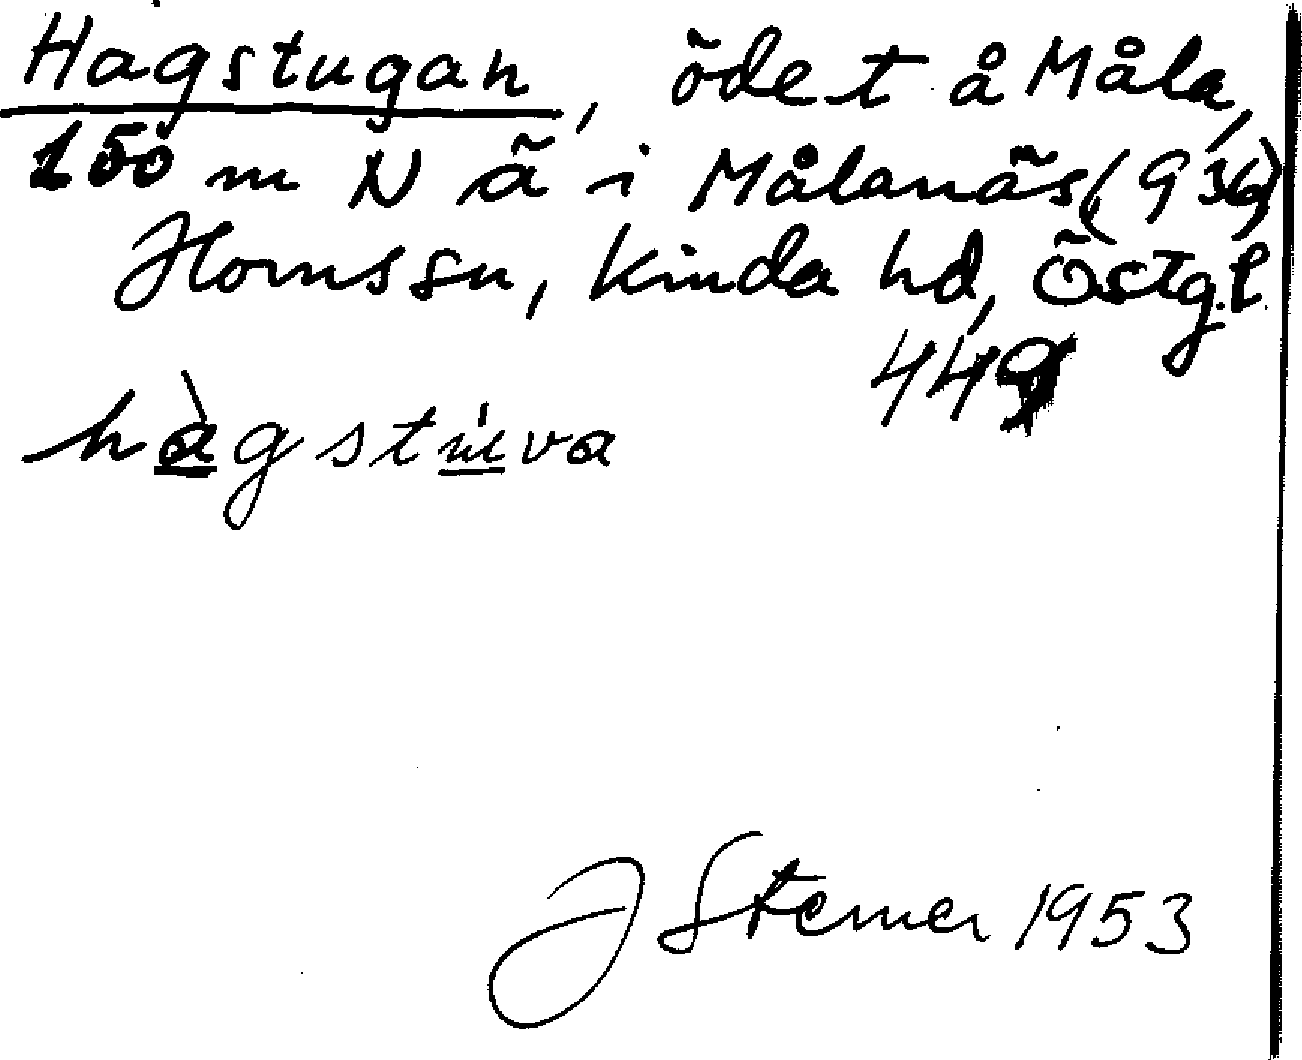 Hagstugan, ödet å Måla,
150 m N ä i Målanäs (936)
Horns sn, Kinda hd, Östg. l.
449
hàgstúva
J Sterner 1953